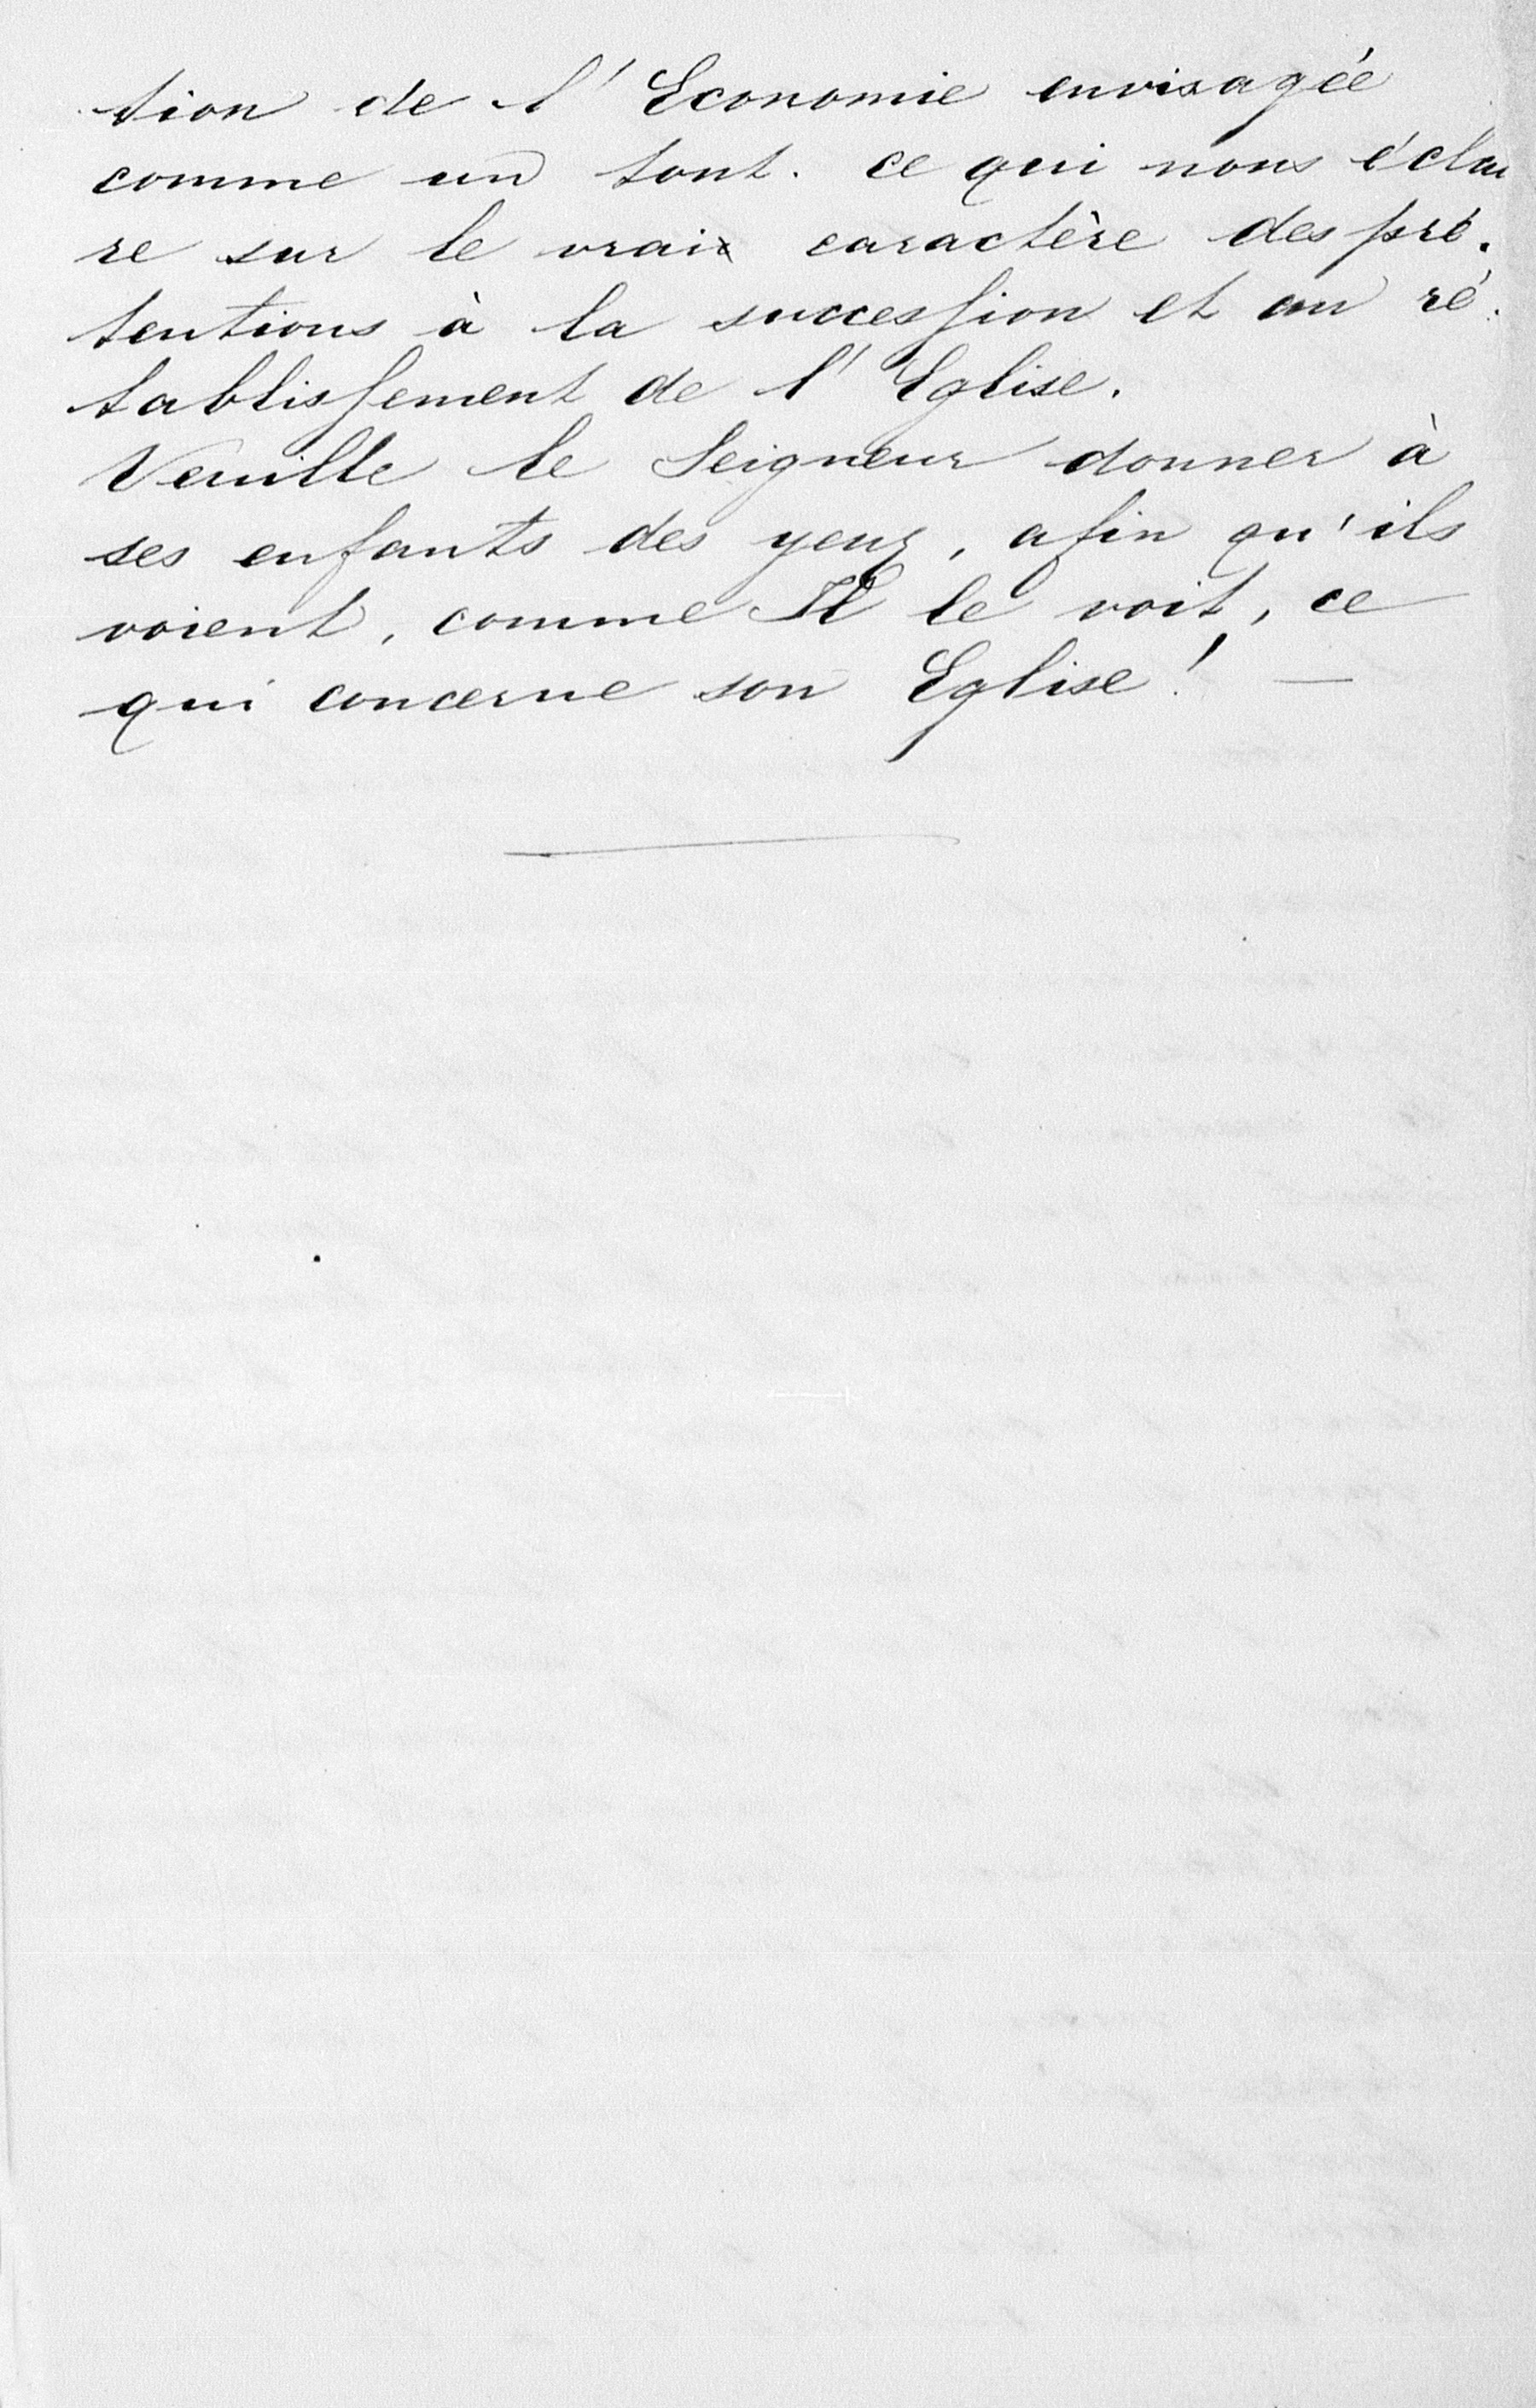 tion de l'Economie envisagée
comme un tout. ce qui nous éclai
re sur le vrai caractère des pré.
tentions à la succession et au ré.
tablissement de l'Eglise.
Veuille le Seigneur donner à
ses enfants des yeux, afin qu'ils
voient, comme Il le voit, ce
qui concerne son Eglise! —